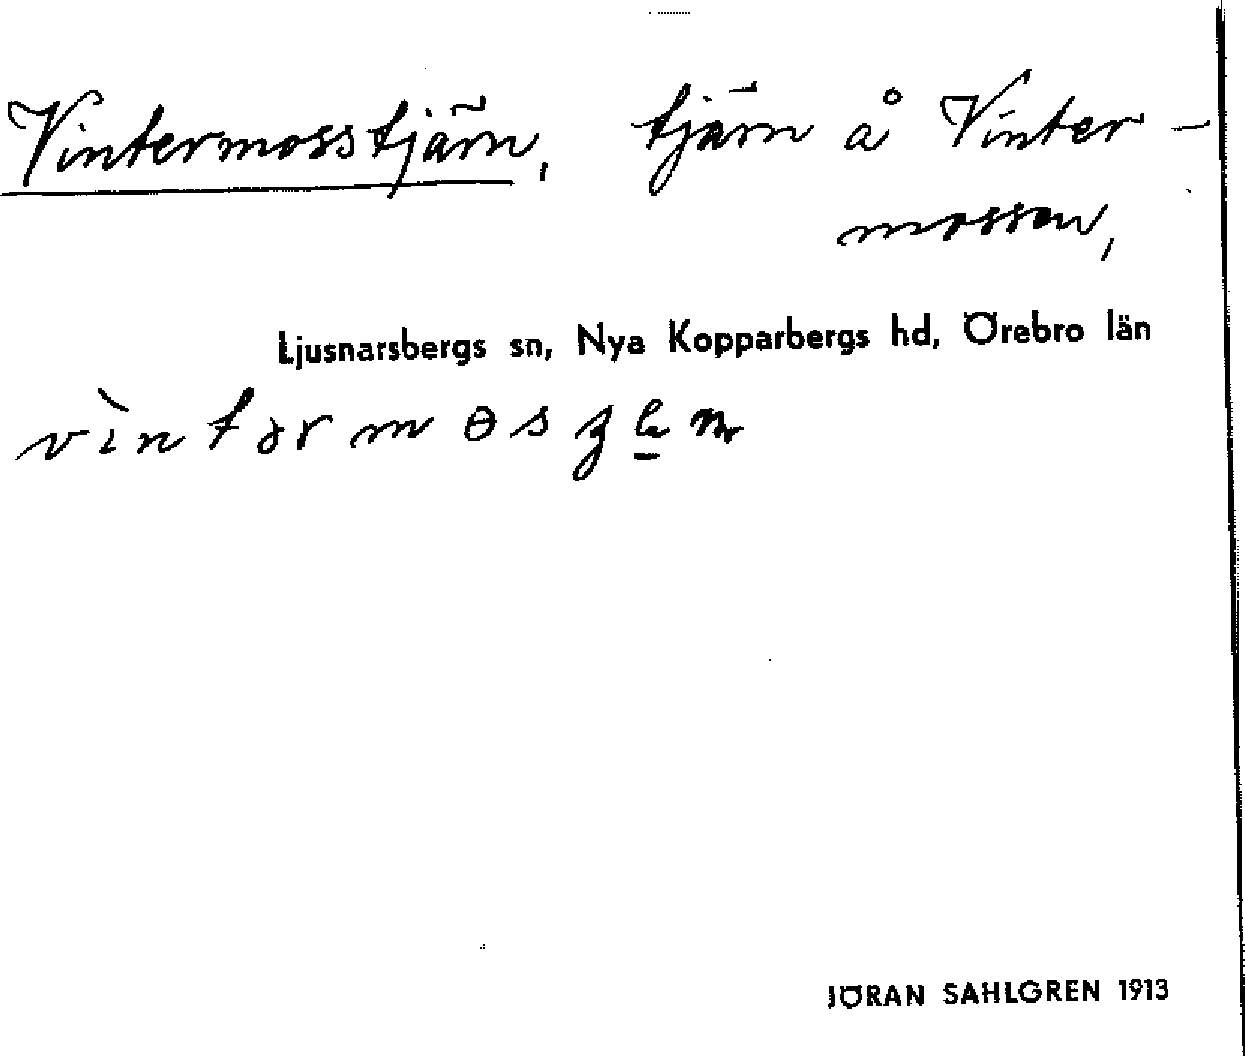 Vintermosstjärn, tjärn å Vinter-
mossen,
Ljusnarsbergs sn, Nya Kopparbergs hd, Örebro län
JÖRAN SAHLGREN 1913